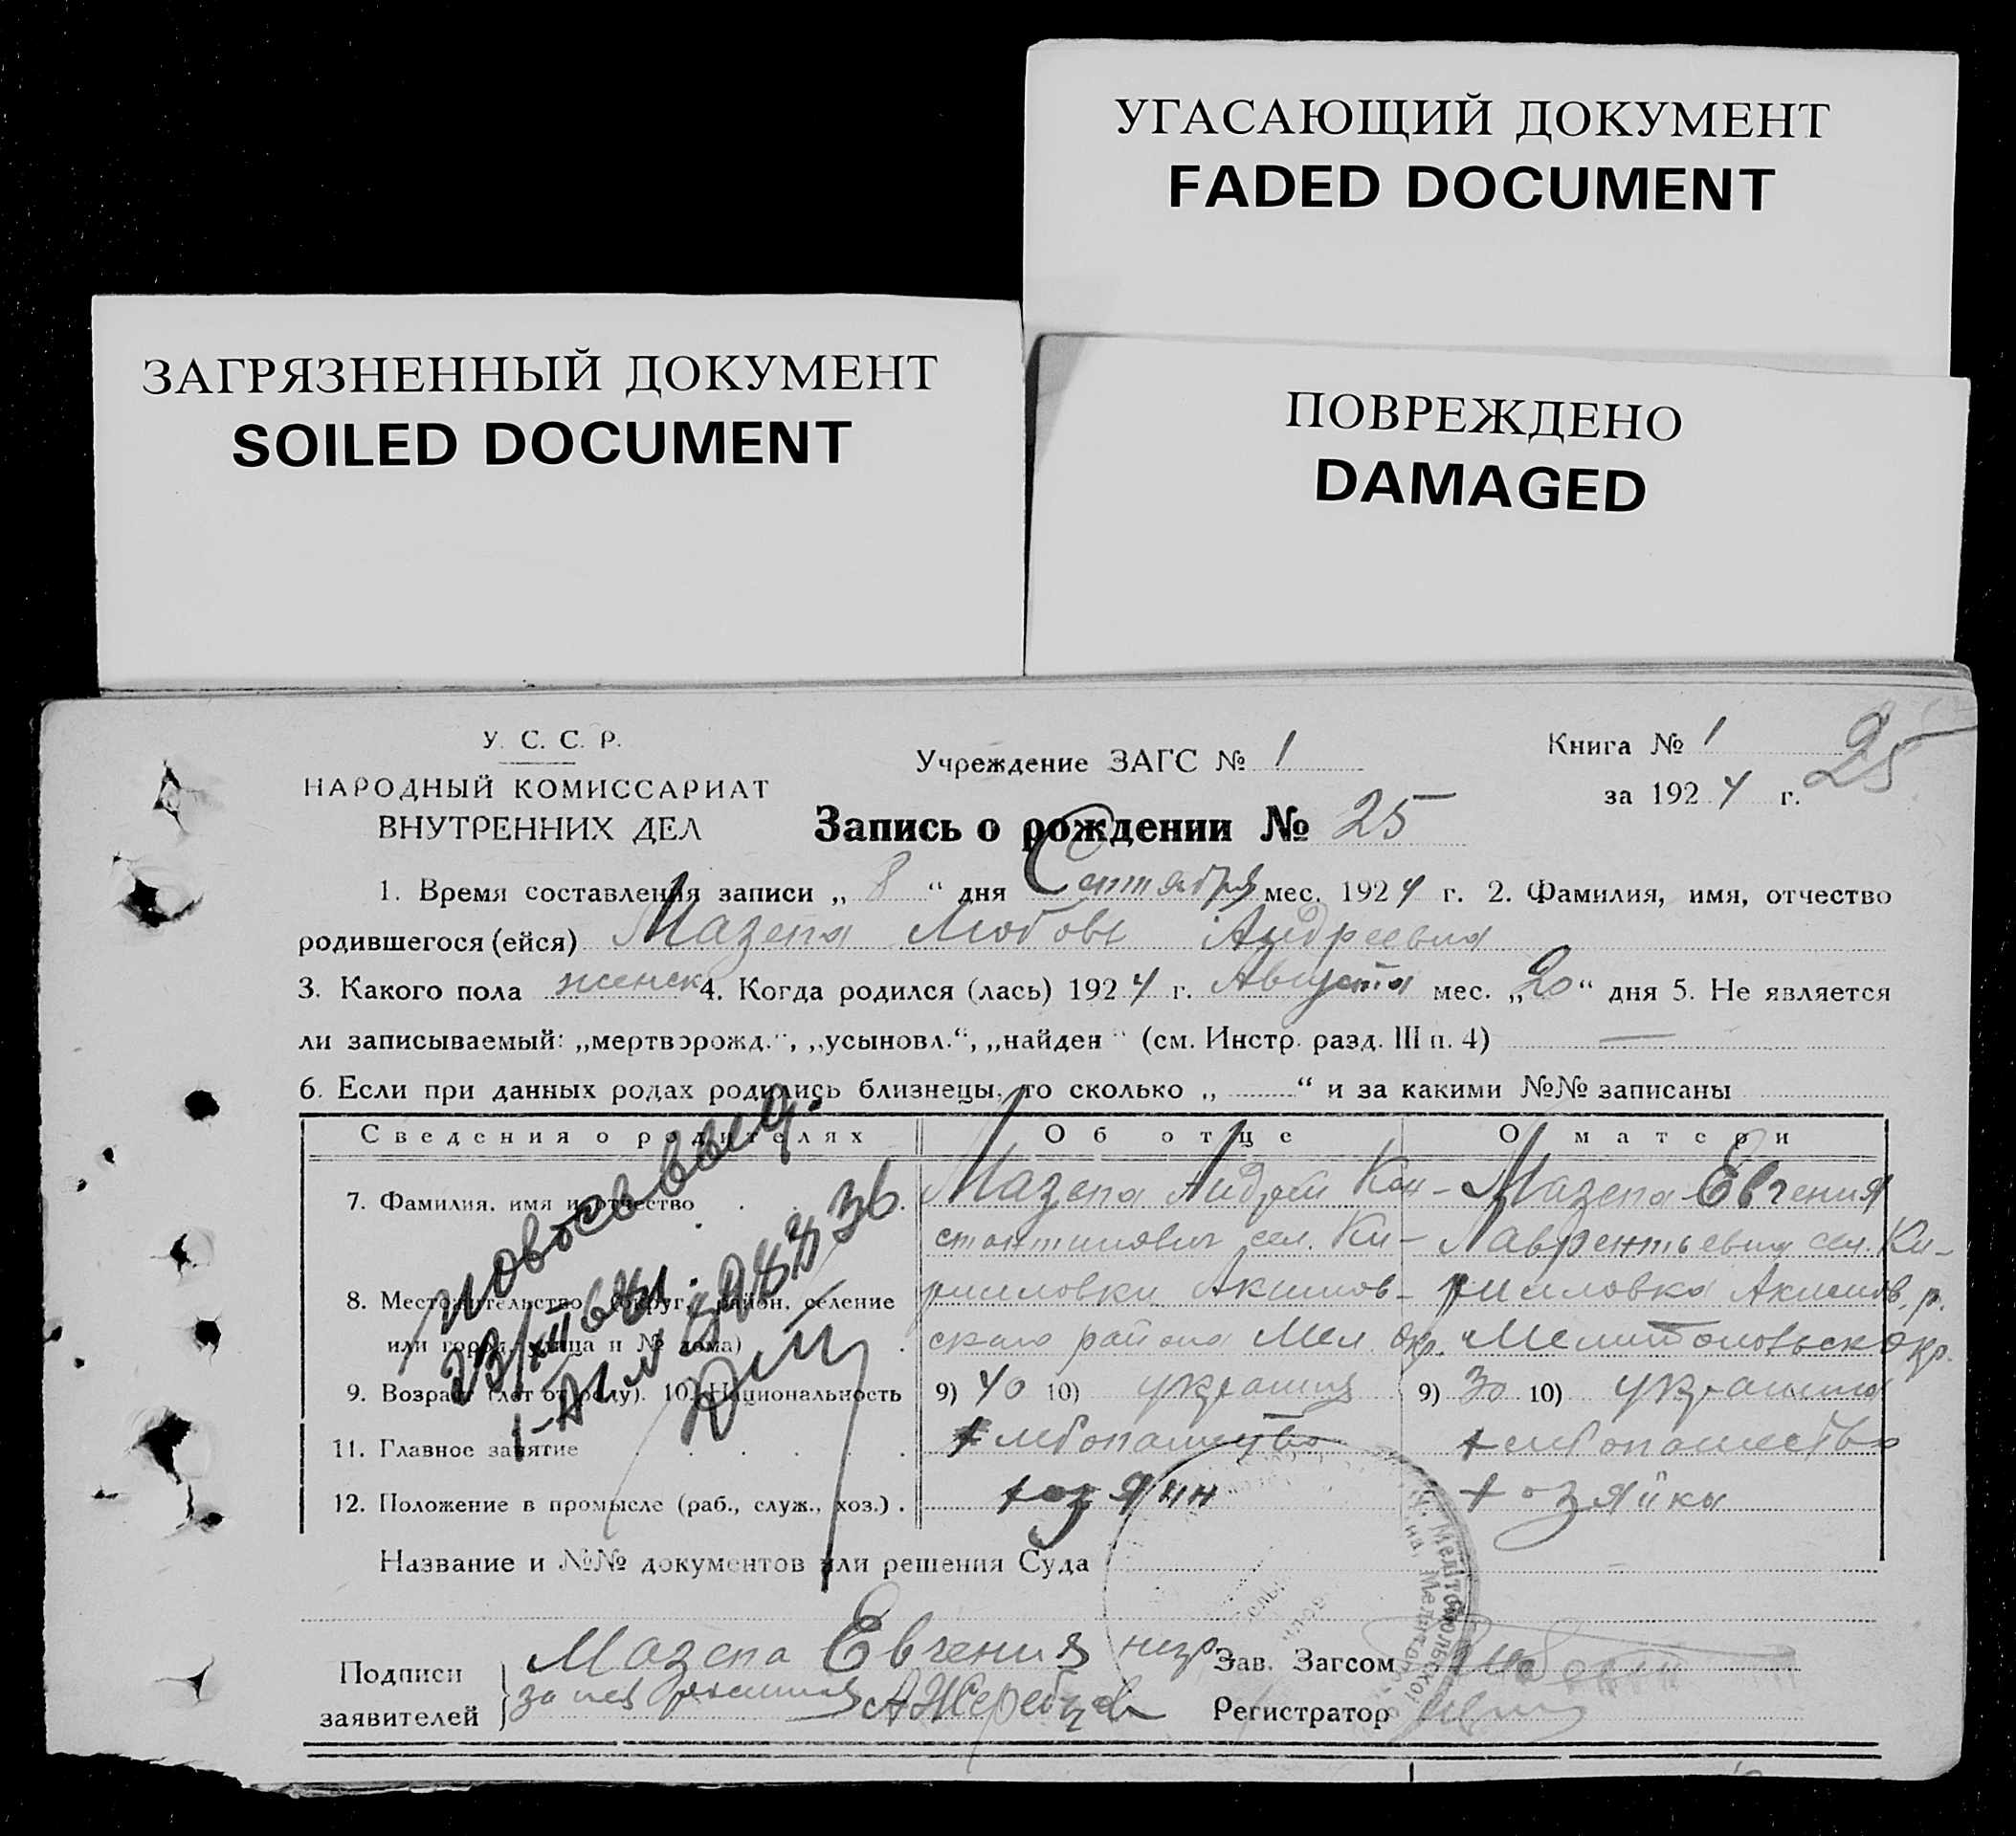 УГАСАЮЩИЙ ДОКУМЕНТ
FADED DOCUMENT
ЗАГРЯЗНЕННЫЙ ДОКУМЕНТ
SOILED DOCUMENT
ПОВРЕЖДЕНО
DAMAGED
У. С. С. Р.
НАРОДНЫЙ КОМИССАРИАТ
ВНУТРЕННИХ ДЕЛ
Учреждение ЗАГС № 1
Книга № 1
за 1924 г.
25
Запись о рождении № 25
1. Время составления записи „ 8 “ дня Сентября мес. 1924 г. 2. Фамилия, имя, отчество
родившегося (ейся) Мазепа Любовь Андреевна
3. Какого пола женск 4. Когда родился (лась) 1924 г. Августа мес. „20“ дня 5. Не является
ли записываемый: „мертворожд.“, „усыновл.“, „найден“ (см. Инстр. разд. III п. 4) —
6. Если при данных родах родились близнецы, то сколько „ “ и за какими №№ записаны
Сведения о родителях Об отце О матери
7. Фамилия, имя и отчество Мазепа Андрей Кон- Мазепа Евгения
стантинович сел. Ки- Лаврентьевна сел. Ки-
8. Местожительство (округ, район, селение рилловки Акимов- рилловка Акимов. р.
или город, улица и № дома) скаго района Мел. Окр. Мелитопольск Окр.
9. Возраст (лет от роду). 10. Национальность 9) 40 10) украинец 9) 30 10) украинка
11. Главное занятие хлебопашество хлебопашество
12. Положение в промысле (раб., служ., хоз.) хозяин хозяйка
Название и №№ документов или решения Суда
Подписи Мазепа Евгения негр Зав. Загсом
заявителей за нея А Жеребцов Регистратор